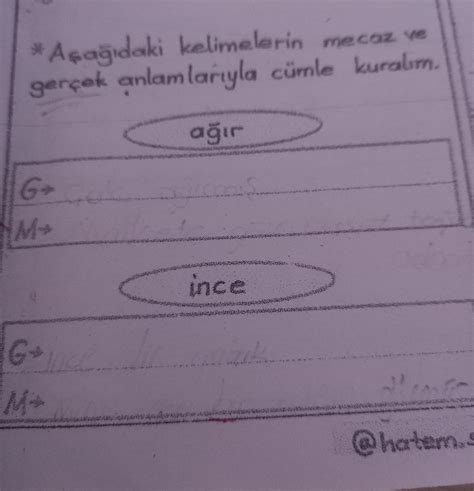 *Aşağıdaki kelimelerin mecaz ve
gerçek anlamlarıyla cümle kuralım.
ağır
G→
M→
ince
G→ince bir
M→
@hatem.s